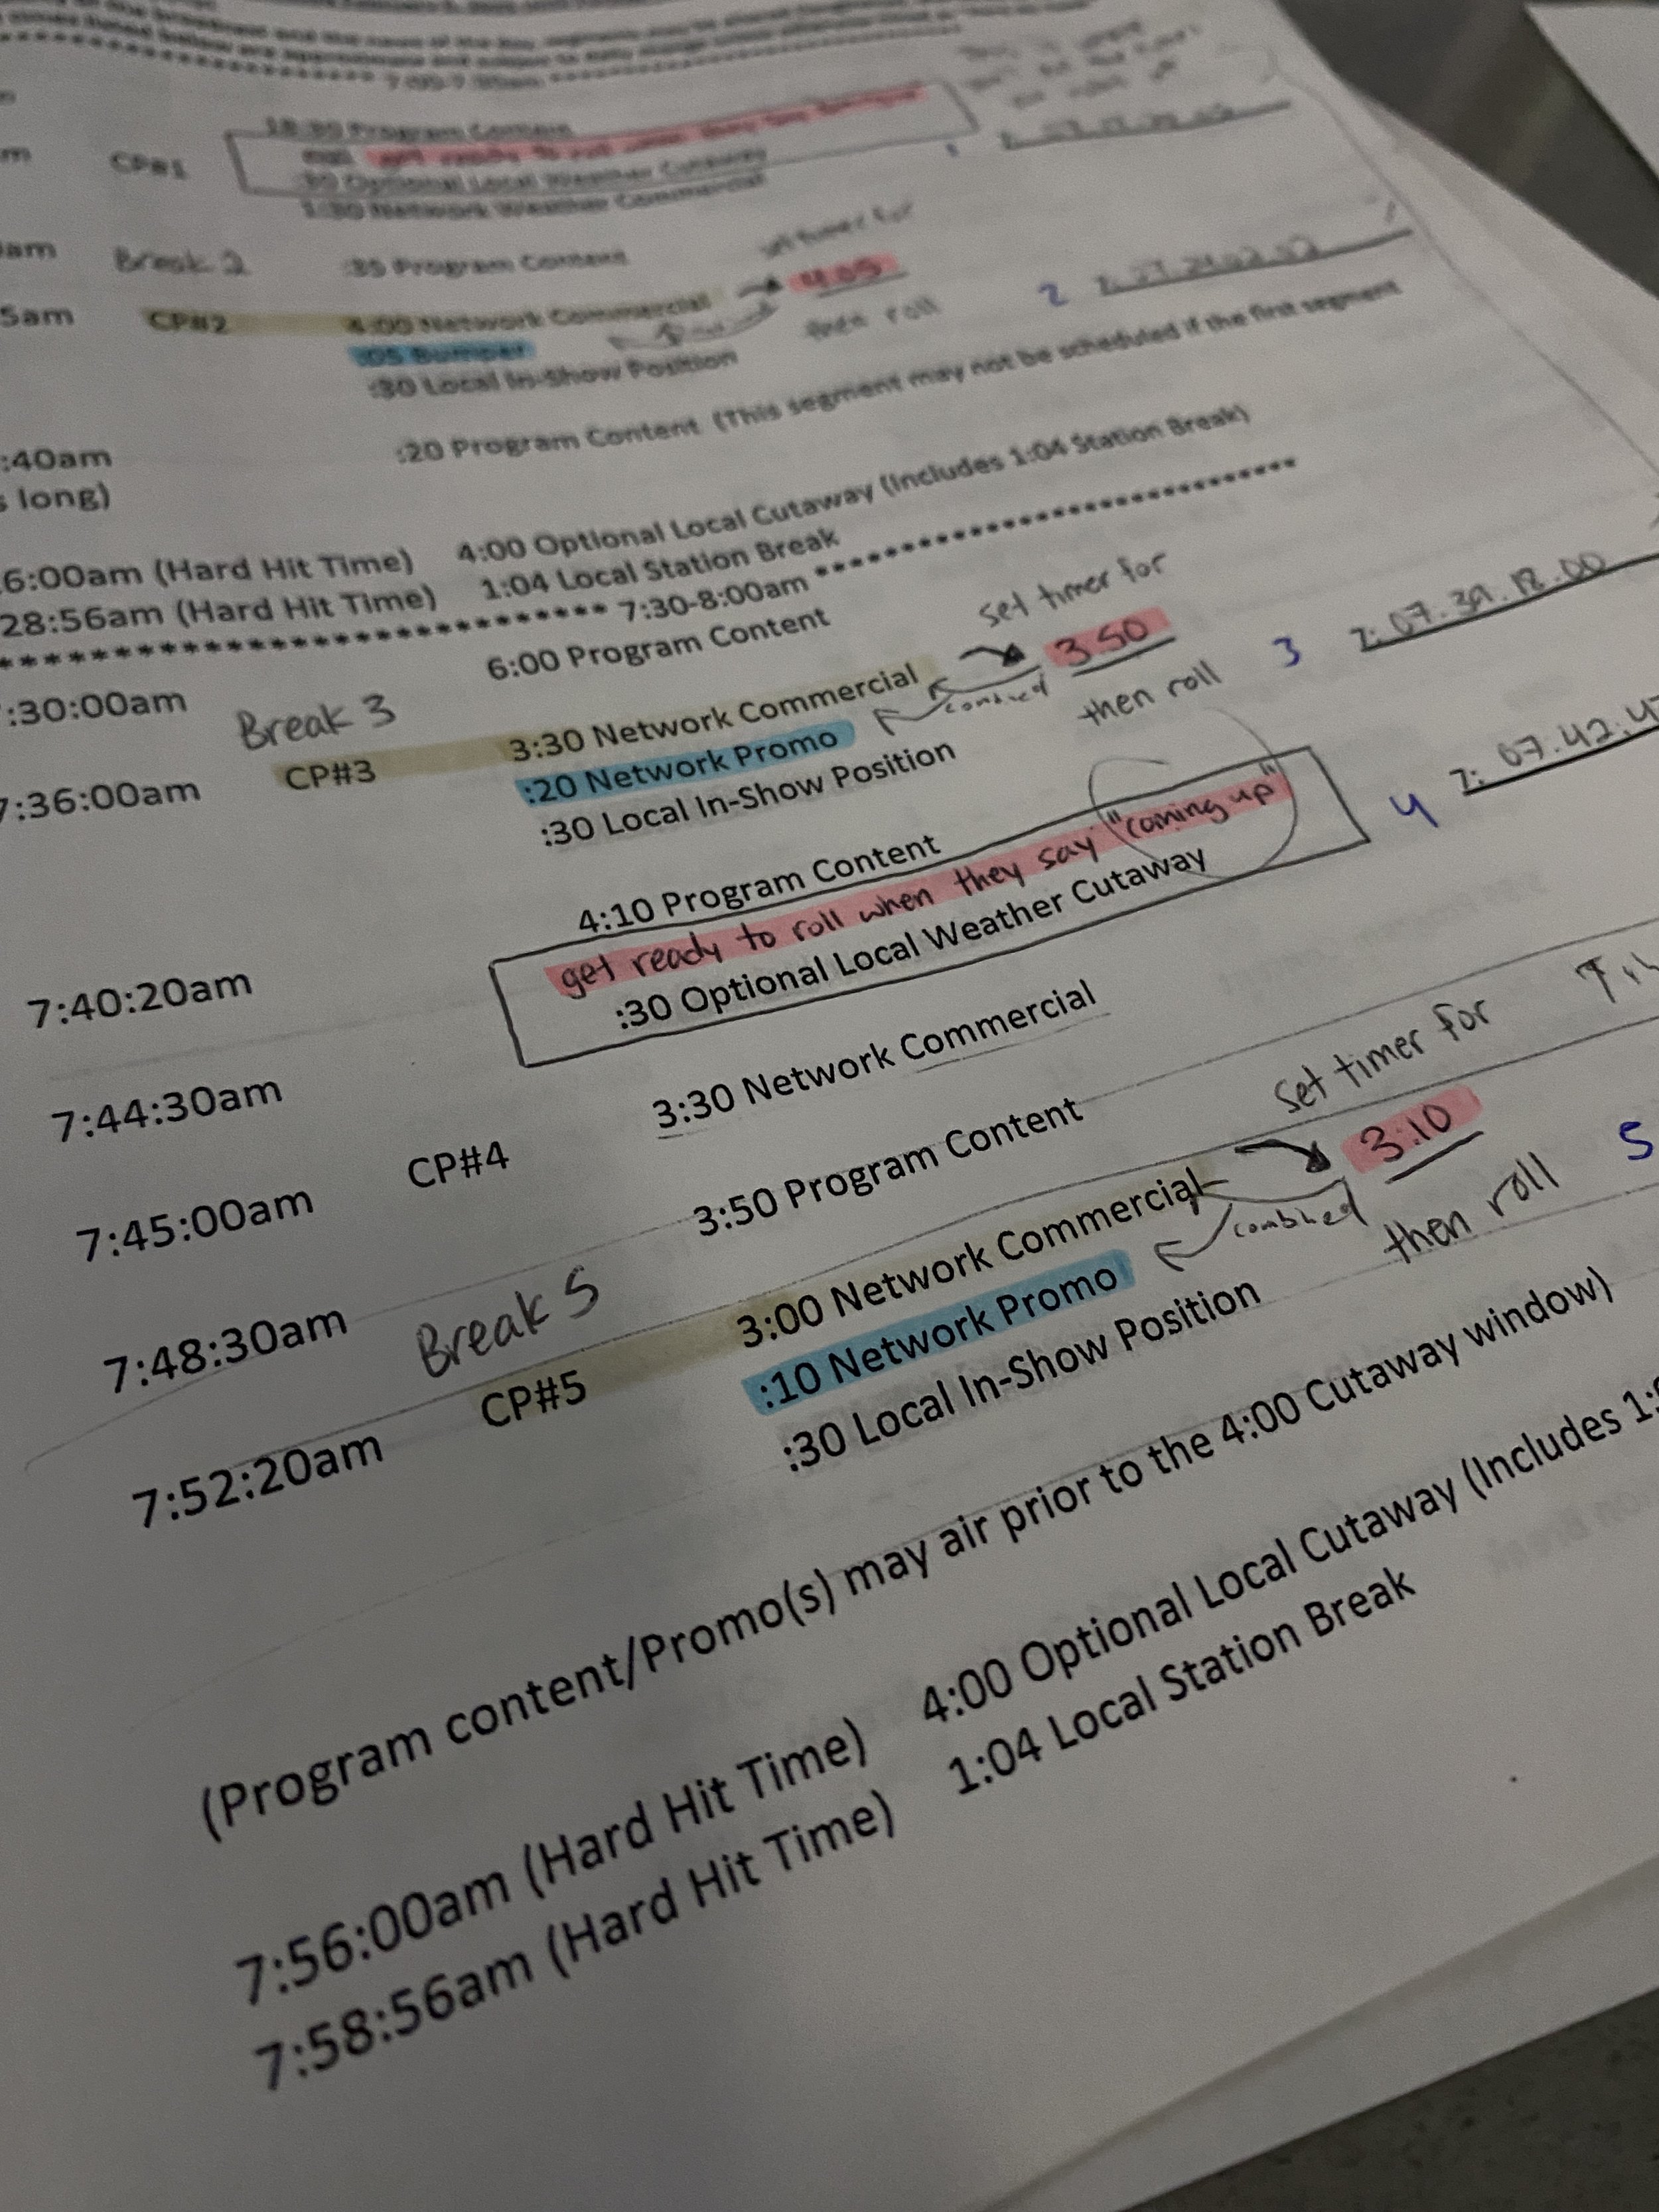 7:00-7:30am
Program Content
CP#1
:30 Optional Local Weather Cutaway
1:30 Network Weather Commercial
am Break 2 :35 Program Content set timer for
5am CP#2 4:00 Network Commercial 4:05
:05 Bumper then roll 2
:30 Local In-Show Position
:40am :20 Program Content (This segment may not be scheduled if the first segment
s long)
6:00am (Hard Hit Time) 4:00 Optional Local Cutaway (Includes 1:04 Station Break)
28:56am (Hard Hit Time) 1:04 Local Station Break
******************************* 7:30-8:00am *******************************
:30:00am 6:00 Program Content set timer for
Break 3 3.50 3 7: 07.39.18.00
7:36:00am CP#3 3:30 Network Commercial combined then roll
:20 Network Promo
:30 Local In-Show Position
7:40:20am 4:10 Program Content 4 7: 07.42.4
get ready to roll when they say "coming up"
7:44:30am :30 Optional Local Weather Cutaway
7:45:00am CP#4 3:30 Network Commercial
7:48:30am 3:50 Program Content set timer for
Break 5 3:10 5
7:52:20am CP#5 3:00 Network Commercial combined then roll
:10 Network Promo
:30 Local In-Show Position
(Program content/Promo(s) may air prior to the 4:00 Cutaway window)
7:56:00am (Hard Hit Time) 4:00 Optional Local Cutaway (Includes
7:58:56am (Hard Hit Time) 1:04 Local Station Break